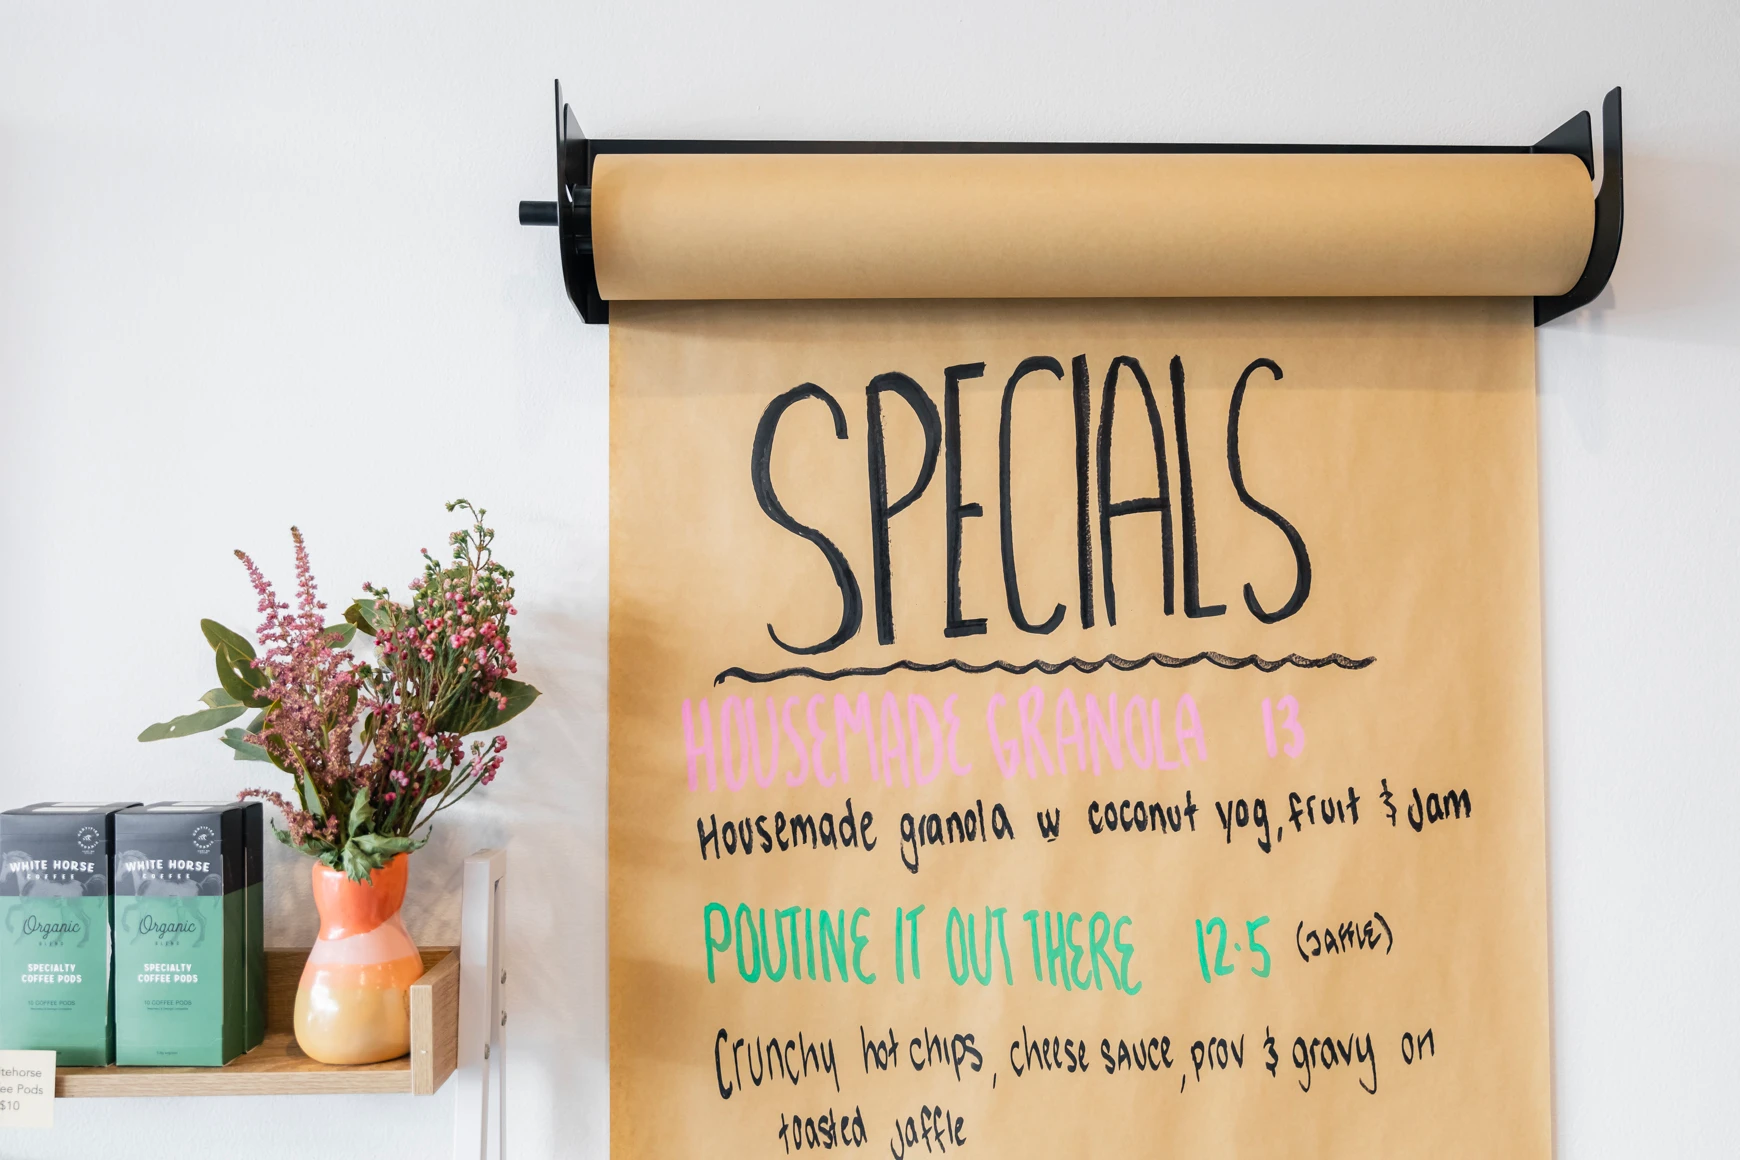 SPECIALS
HOUSEMADE GRANOLA 13
Housemade granola w coconut yog, fruit & Jam
POUTINE IT OUT THERE 12.5 (JAFFLE)
Crunchy hot chips, cheese sauce, prov & gravy on
toasted jaffle
WHITE HORSE
COFFEE
Organic
BLEND
SPECIALTY
COFFEE PODS
10 COFFEE PODS
WHITE HORSE
COFFEE
Organic
BLEND
SPECIALTY
COFFEE PODS
10 COFFEE PODS
tehorse
ee Pods
$10